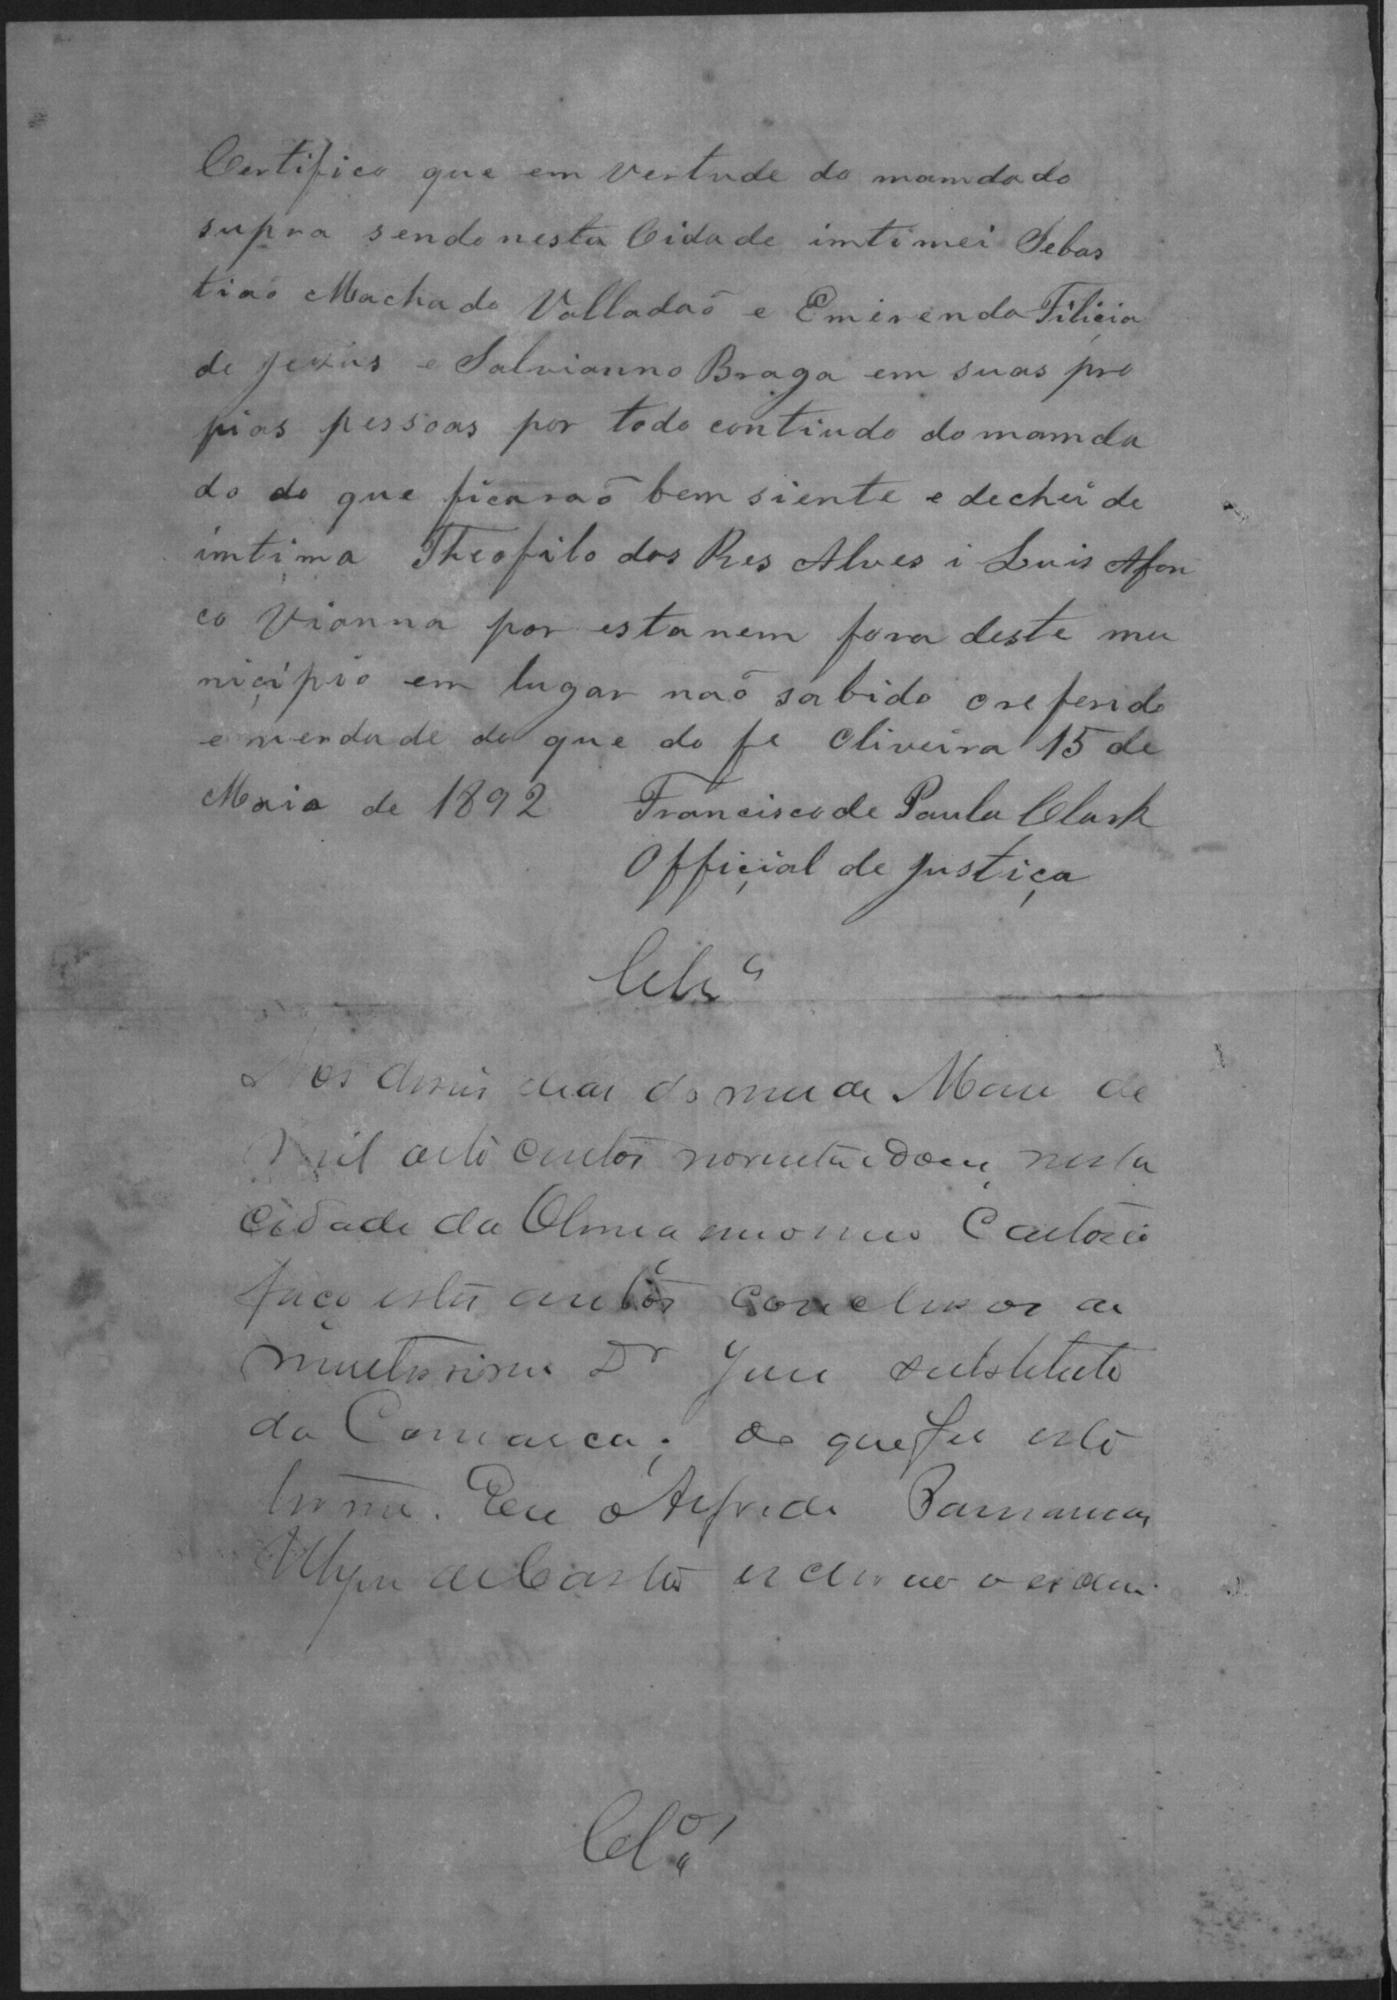 Certifico que em vertude do mamdado
supra sendo nesta Cidade imtimei Sebas
tiaõ Machado Valladaõ e Emerenda Filiçia
de Jezus e Salvianno Braga em suas pro
pias pessoas por todo contiudo do mamda
do do que ficaraõ bem siente e dechei de
imtima Theofilo dos Res Alves i Luis Afon
co Vianna por estarem fora deste mu
niçipio em lugar naõ sabido o referido
e verdade do que do fe Oliveira 15 de
Maio de 1892 Francisco de Paula Clark
Offiçial de justiça
Aos deseis dias do mes de Maio de
Mil oito centos noventa e dous, nesta
Cidade da Oliveira em o meu Cartorio
faço estes autos conclusos ao
Dr Juis substituto
da Comarca; do que fis este
termo. Eu Alfredo
de Castro escrivão o escrevi.